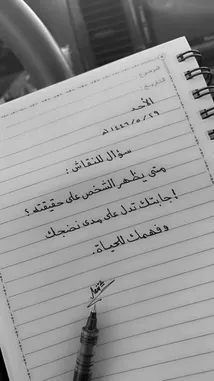 الموضوع:
التاريخ:
الأحد
١٤٤٦/٥/٢٩هـ
سؤال للنقاش :
متى يظهر الشخص على حقيقته ؟
إجابتك تدل على مدى نضجك
وفهمك للحياة.